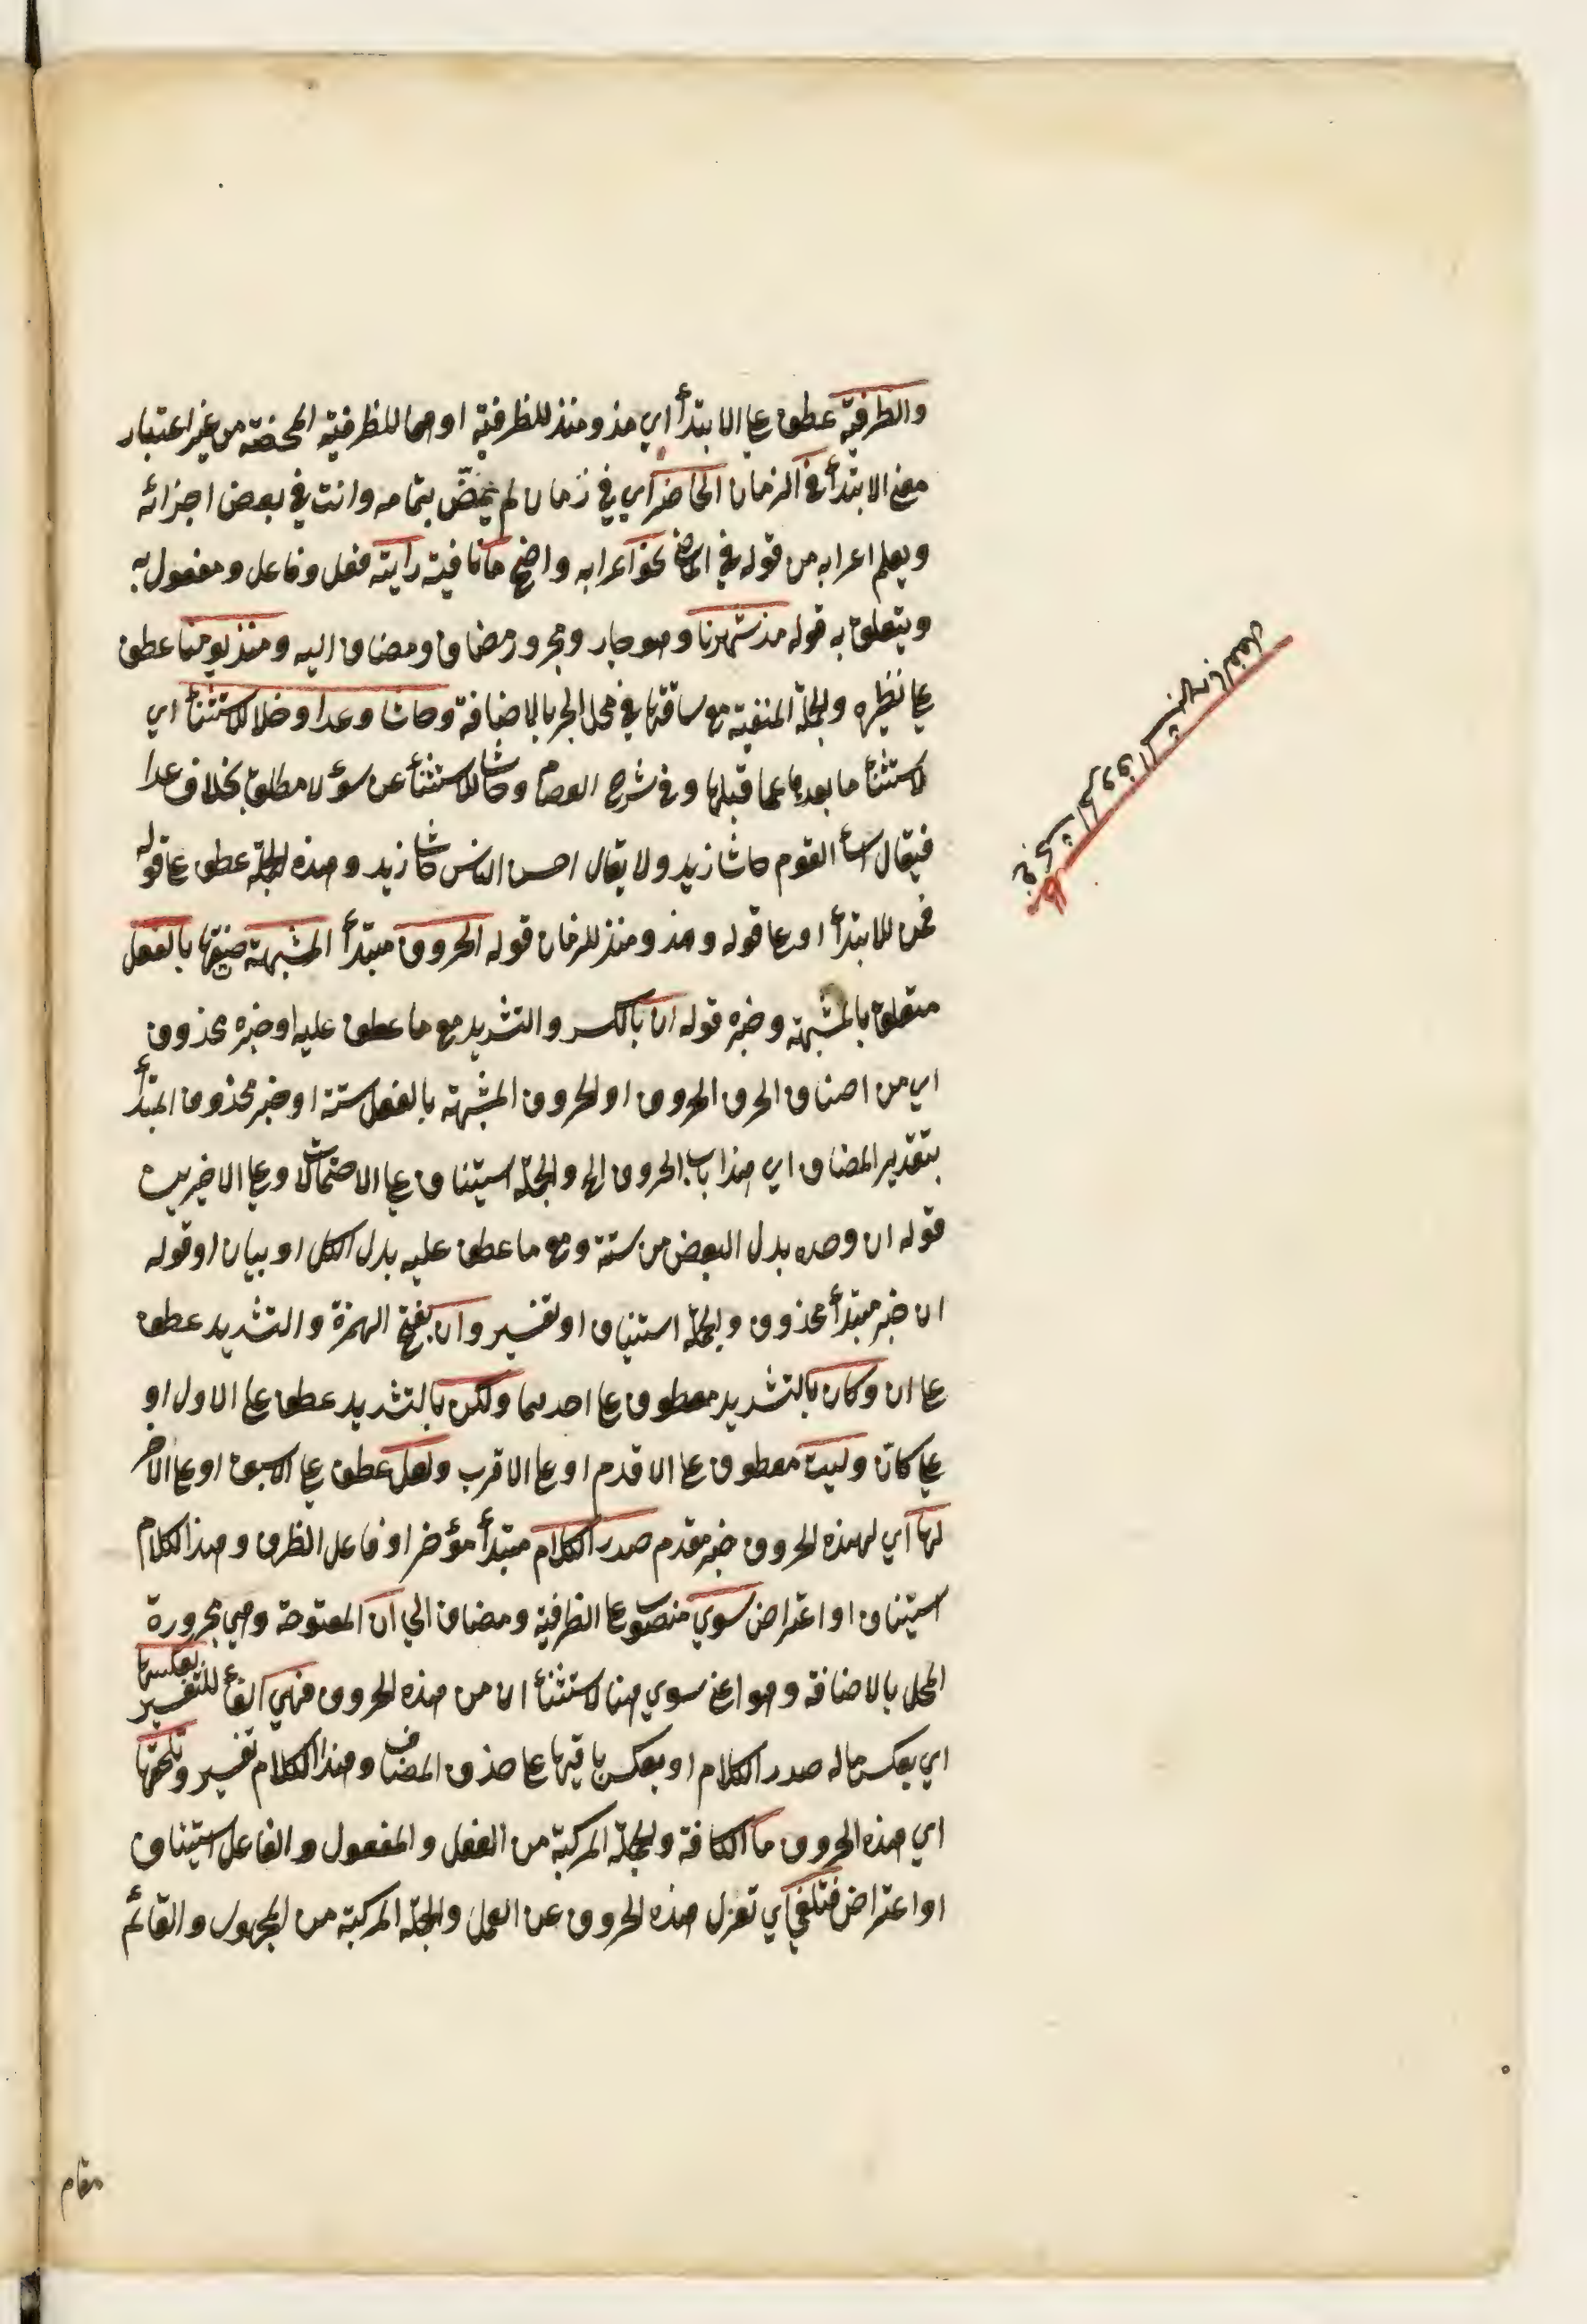 والظرفية عطف على الابتدأ اي مذ ومنذ للظرفية او هما للظرفية المحضة من غير اعتبار
معنى الابتدأ في الزمان الحاضر اي في زمان لم يمض بتمامه وانت في بعض اجزائه
ويعلم اعرابه من قوله في الماضي نحو اعرابه واضح ما نافية رايته فعل وفاعل ومفعول به
ويتعلق به قوله مذ شهرنا وهو جار ومجرور مضاف ومضاف اليه ومنذ يومنا عطف
على نظيره والجملة المنفية مع ساقتها في محل الجر بالاضافة وحاشا وعدا وخلا للاستثنأ اي
لاستثنأ ما بعدها عما قبلها وفي شرح العصام وحاشا للاستثنأ عن سوء لا مطلق بخلاف عدا
فيقال اسأ القوم حاشا زيد ولا يقال احسن الناس حاشا زيد وهذه الجملة عطف على قوله
فمن للابتدأ او على قوله ومذ ومنذ للزمان قوله الحروف مبتدأ المشبهة صفتها بالفعل
متعلق بالمشبهة وخبره قوله ان بالكسر والتشديد مع ما عطف عليه او خبره محذوف
اي من اصناف الحرف الحروف او الحروف المشبهة بالفعل ستة او خبر محذوف المبتدأ
بتقدير المضاف اي هذا باب الحروف الخ والجملة استيناف على الاحتمالات وعلى الاخيرين
قوله ان وحده بدل البعض من ستة ومع ما عطف عليه بدل الكل او بيان او قوله
ان خبر مبتدأ محذوف والجملة استيناف او تفسير وان بفتح الهمزة والتشديد عطف
على ان وكان بالتشديد معطوف على احدهما ولكن بالتشديد عطف على الاول او
على كان وليت معطوف على الاقدم او على الاقرب ولعل عطف على الاسبق او على الاخر
لها اي لهذه الحروف خبر مقدم صدر الكلام مبتدأ مؤخر او فاعل الظرف وهذا الكلام
استيناف او اعتراض سوي منصوب على الظرفية ومضاف الي ان المفتوحة وهي مجرورة
المحل بالاضافة وهو اعني سوي هنا لاستثنأ ان من هذه الحروف فهي الفأ للتفسير بعكسها
اي بعكس ما له صدر الكلام او بعكس باقيها على حذف المضاف وهذا الكلام تفسير وتلحقها
اي هذه الحروف ما الكافة والجملة المركبة من الفعل والمفعول والفاعل استيناف
او اعتراض فتلغي اي تعزل هذه الحروف عن العمل والجملة المركبة من المجهول والقائم
مقام